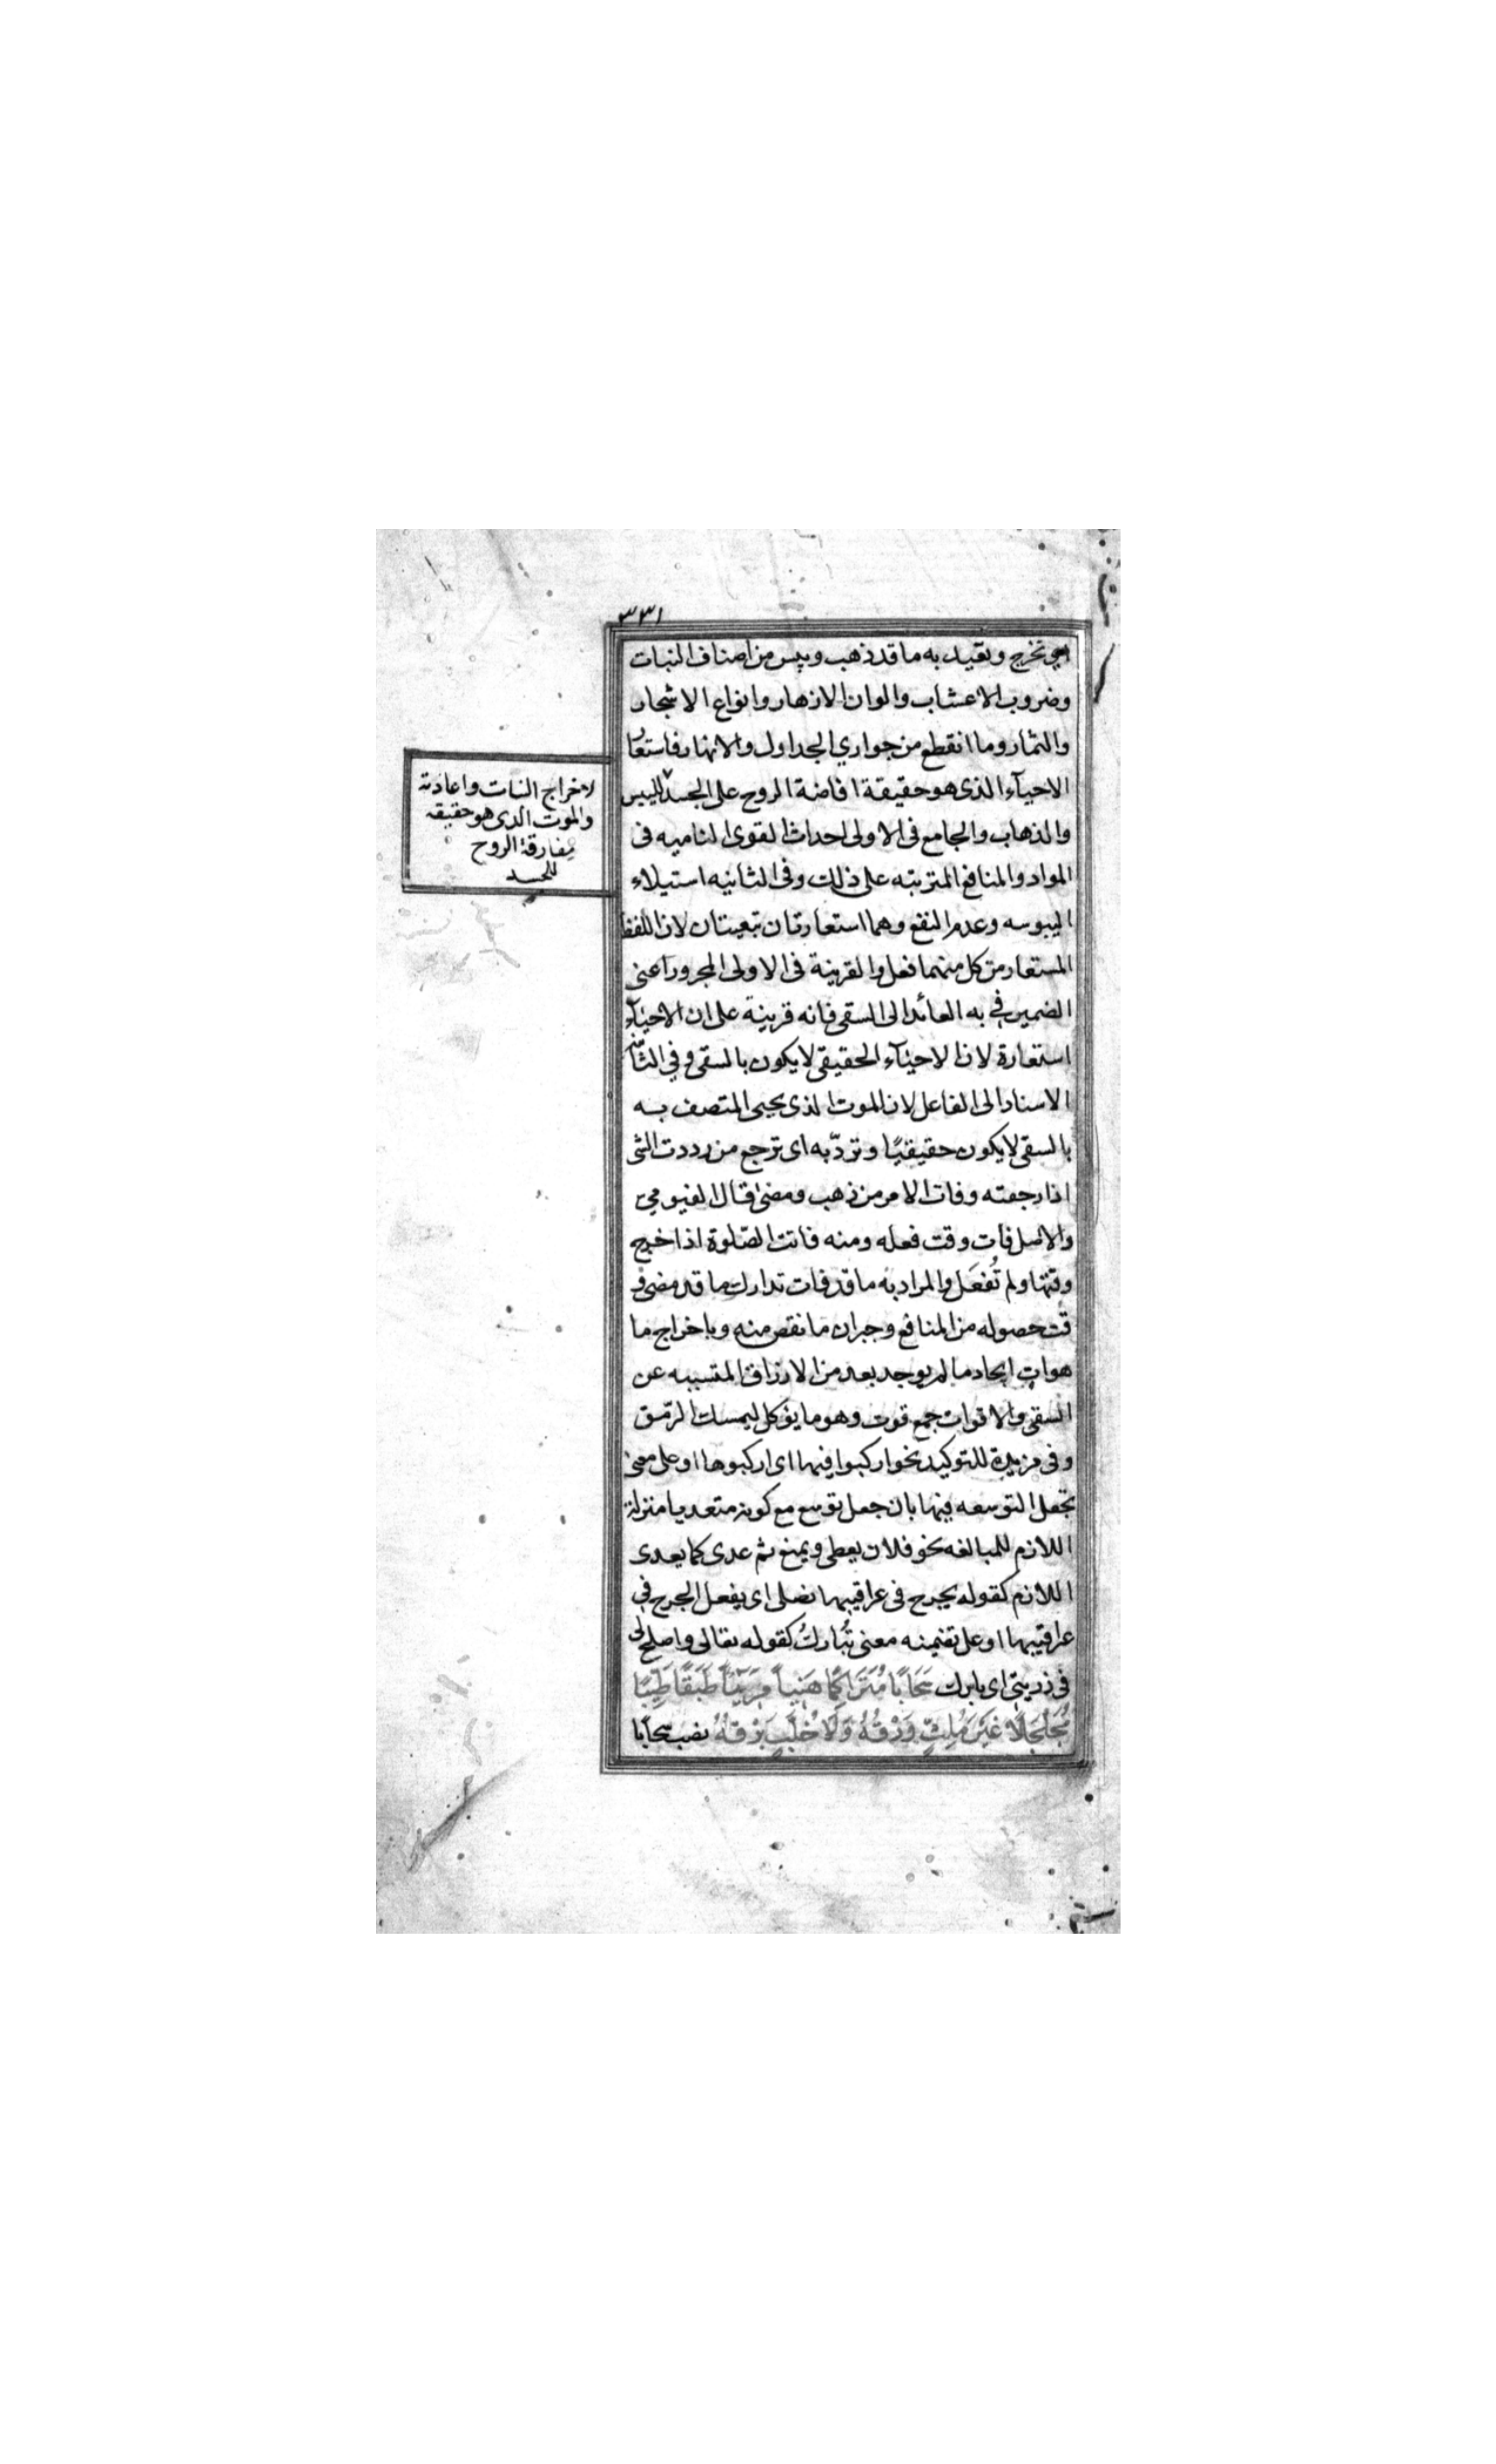 ٣٣١
اي تخرج وتعيد به ما قد ذهب ويبس من اصناف النبات
وضروب الاعشاب والوان الازهار وانواع الاشجار
والثمار وما انقطع من جواري الجداول والانهار فاستعا
الاحيآء الذى هو حقيقة افاضة الروح على الجسد لليبس
والذهاب والجامع فى الاولى احداث القوى الناميه فى
المواد والمنافع المترتبه على ذلك وفى الثانيه استيلاء
اليبوسه وعدم النفع وهما استعارتان تبعيتان لان اللفظ
المستعار من كل منهما فعل والقرينة فى الاولى المجرور اعنى
الضمير في به العائد الى السقى فانه قرينة على ان الاحيآء
استعارة لان الاحيآء الحقيقى لا يكون بالسقى وفي الثّا
الاسناد الى الفاعل لان الموت الذى يحيى المتصف به
بالسقى لا يكون حقيقيًا وتردّ به اى ترجع من رددت الشى
اذا رجعته وفات الامر من ذهب ومضى قال الفيومي
والاصل فات وقت فعله ومنه فاتت الصّلوة اذا خرج
وقتها ولم تُفعَل والمراد به ما قد فات تدارك ما قد مضى و
قت حصوله من المنافع وجبران ما نقص منه وباخراج ما
هوات ايجاد ما لم يوجد بعد من الارزاق المتسببه عن
السقى والاقوات جمع قوت وهو ما يؤكل ليمسك الرّمق
وفى مزيدة للتوكيد نحو اركبوا فيها اى اركبوها او على معنى
تجعل التوسعه فيها بان جعل توسع مع كونه متعديا منزلة
اللازم للمبالغه نحو فلان يعطى ويمنع ثم عدى كما يعدى
اللازم كقوله يجرح فى عراقيبها نصلى اى يفعل الجرح في
عراقيبها او على تضمينه معنى تُبارك كقوله تعالى واصلح لى
فى ذريتى اى بارك سَحَابًا مُتَرَاكِمًا هَنِيئاً مَرِيئاً طَبَقًا طَيِّبًا
مُجَلْجَلًا غَيْرَ مُلِثٍّ وَدْقُهُ وَلَا خُلَّبٍ بَرْقُهُ نصب سحابا
لاخراج النبات واعادته
والموت الذى هو حقيقه
مفارقة الروح
للجسد